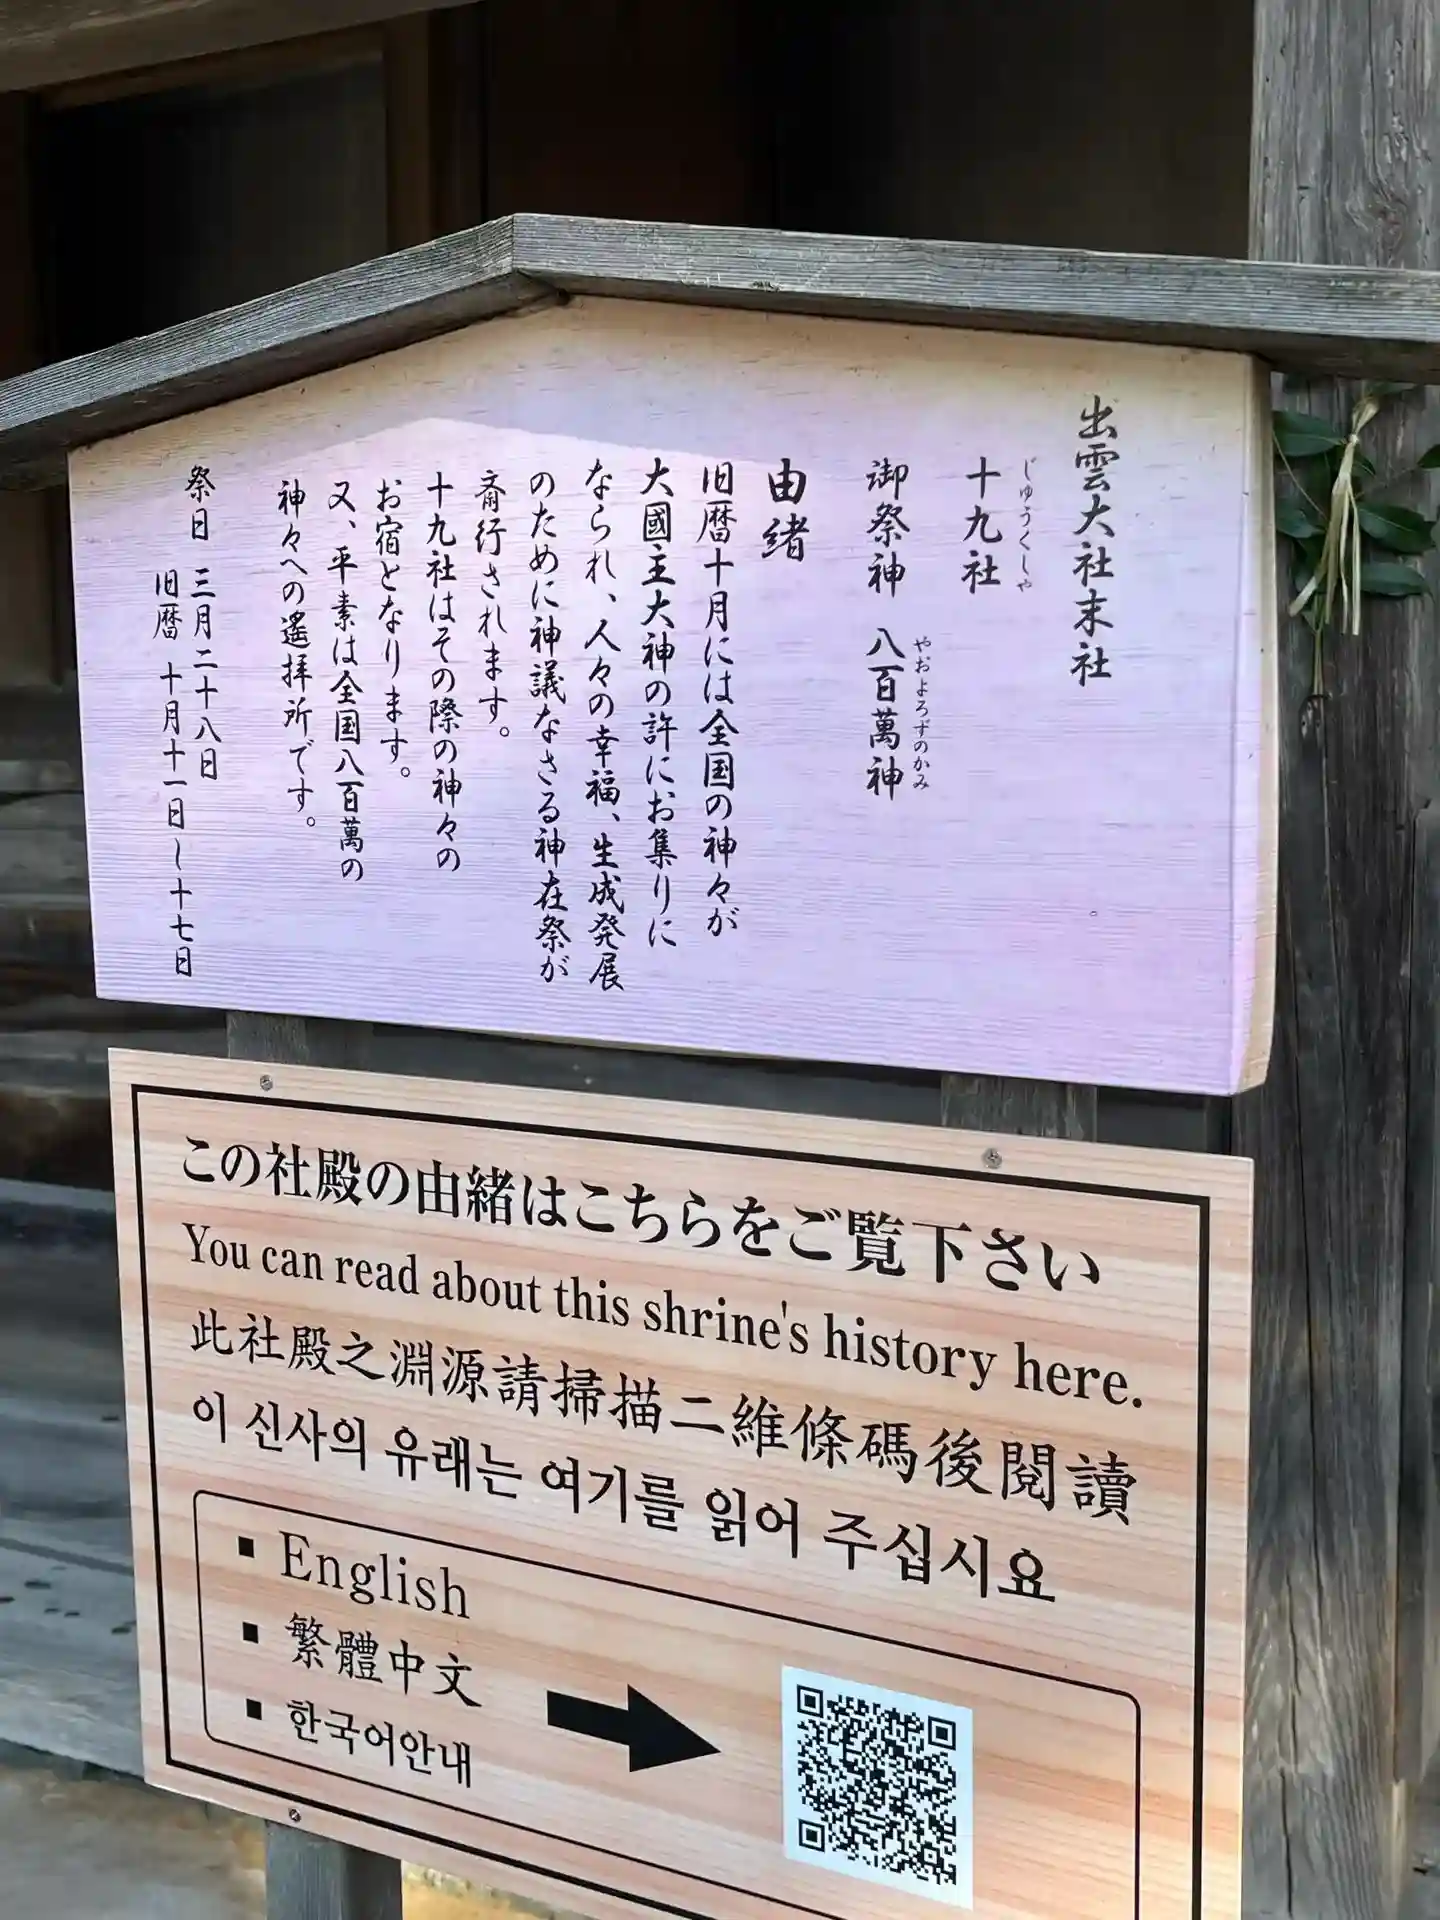 出雲大社末社
じゅうくしゃ
十九社
やおよろずのかみ
御祭神 八百萬神
由緒
旧暦十月には全国の神々が
大國主大神の許にお集りに
なられ、人々の幸福、生成発展
のために神議なさる神在祭が
斎行されます。
十九社はその際の神々の
お宿となります。
又、平素は全国八百萬の
神々への遙拝所です。
祭日 三月二十八日
旧暦 十月十一日〜十七日
この社殿の由緒はこちらをご覧下さい
You can read about this shrine's history here.
此社殿之淵源請掃描二維條碼後閱讀
이 신사의 유래는 여기를 읽어 주십시요
▪ English
▪ 繁體中文
▪ 한국어안내